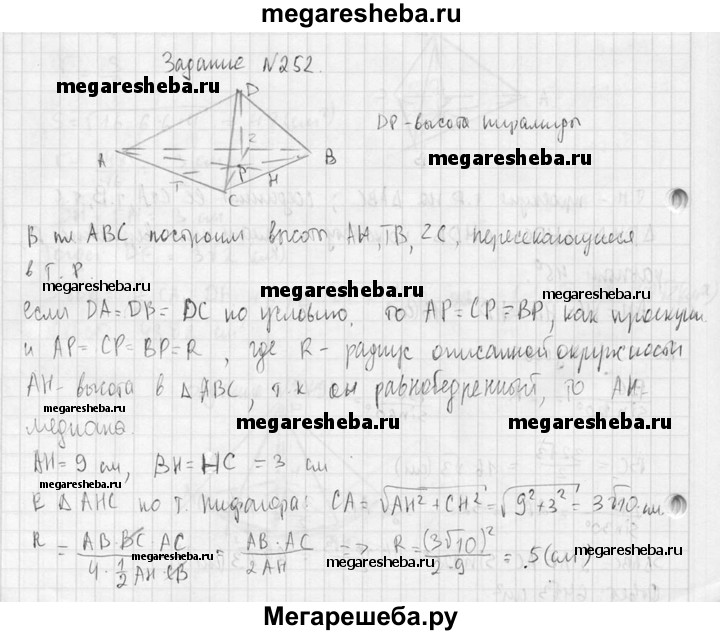 megaresheba.ru
Задание №252.
megaresheba.ru
D
A
B
C
P
T
H
2
DP-высота пирамиды
megaresheba.ru
В пл ABC построим высоты AH, TB, ZC, пересекающиеся
в т. P.
megaresheba.ru
megaresheba.ru
megaresheba.ru
если DA=DB=DC по условию, то AP=CP=BP, как проекции
и AP=CP=BP=R, где R- радиус описанной окружности
AH- высота в △ABC, т.к он равнобедренный, то AH-
megaresheba.ru
megaresheba.ru
megaresheba.ru
медиана.
AH=9 см, BH=HC=3 см
megaresheba.ru
В △AHC по т. Пифагора: CA=√AH²+CH²=√9²+3²=3√10 см.
R = AB·BC·AC / 4·1/2 AH·CB = AB·AC / 2AH => R=(3√10)² / 2·9 = 5(см)
megaresheba.ru
megaresheba.ru
Мегарешеба.ру